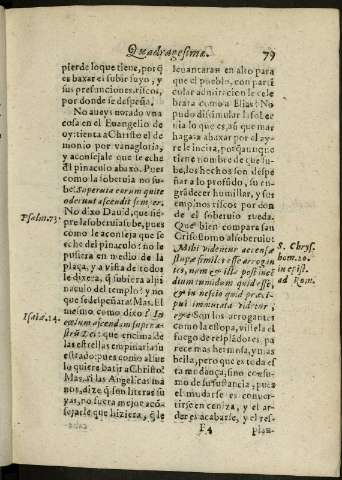 Quadragesimæ. 79
pierde lo que tiene, porq̃
es baxar el subir suyo, y
sus presunciones, riscos,
por donde se despeña,
No aueys notado vna
cosa en el Euangelio de
oy: tienta a Christo el de
monio por vanagloria,
y aconsejale que se eche
del pinaculo abaxo. Pues
como la soberuia no su-
be: Superuia eorum qui te
oderunt ascendit semper:
No dixo Dauid, que siẽ-
pre la soberuia sube, pues
como le aconseja que se
eche del pinaculo: no le
pusiera en medio de la
plaça, y a vista de todos
le dixera, q̃ subiera al pi-
naculo del templo: y no
que se despeñara? Mas. El
mesmo como dixo: In
cælum ascendam super a
stra Dei: que encima de
las estrellas empinaria su
estado: pues como al su-
lo quiere batir a Christo?
Mas, si las Angelicas ma
nos, dize q̃ son literas su
yas, no fuera mejor acõ-
sejarle que hiziera, q̃ le
Psalm. 73.
Isaiæ. 14.
leuantaran en alto para
que el pueblo, con parti
cular admiracion le cele
brara como a Elias? No
pudo dissimular la sober
uia lo que es, aũ que mar
haga ra abaxar por el ay
re le incita, porq̃ aunque
tiene nombre de que su-
be, los hechos son despe
ñar a lo profũdo, su en-
grãdecer humillar, y sus
empinos riscos por don
de el soberuio rueda.
Que bien compara san
Crisostomo al soberuio:
Mihi videntur accensæ
stupæ similes esse arrogan
tes, nam & ista post incẽ
dium tumidum quid esse,
& in nescio quid præci-
pui immutata videtur;
&c. Son los arrogantes
como la estopa, vistela el
fuego de resplãdores, pa
rece mas hermosa, y mas
bella, pero que es toda es
ta mudança, sino consu-
mo de su sustancia, pues
el mudarse es conuer-
tirse en ceniza, y el ar-
der es acabarse, y el res-
S. Chrys.
hom. 20.
in epist.
ad Rom.
F 4
plan-